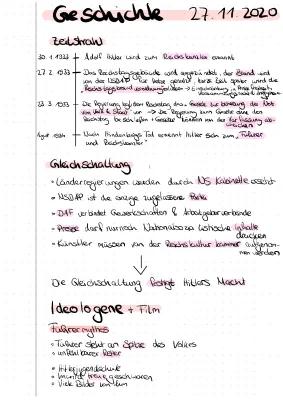 Geschichte 27.11.2020
Zeitstrahl
30.1.1933 Adolf Hitler wird zum Reichskanzler ernannt
27.2.1933 Das Reichstagsgebäude wird angezündet, der Brand wird
von der NSDAP für ihre
Reichstagsbrandverordnung → Einschränkung in
23.3.1933 Die Regierung legt dem Reichstag das "Gesetz zur Behebung der Not
von Volk & Staat" vor → Die Regierung kann Gesetze ohne den
Reichstag beschließen + Gesetze können von der Verfassung ab-
weichen
August 1934 Nach Hindenburgs Tod ernennt Hitler sich zum "Führer
und Reichskanzler"
Gleichschaltung
Länderregierungen werden durch NS Kabinette ersetzt
NSDAP ist die einzige zugelassene Partei
DAF verbindet Gewerkschaften & Arbeitgeberverbände
Presse darf nur noch Nationalsozialistische Inhalte
drucken
Künstler müssen von der Reichskulturkammer aufgenom-
men werden
Die Gleichschaltung festigt Hitlers Macht
Ideologene + Film
Führermythos
Führer steht an Spitze des Volkes
unfehlbarer Retter
Hitlerjugend
treue geschworen
Viele Bilder von ihm